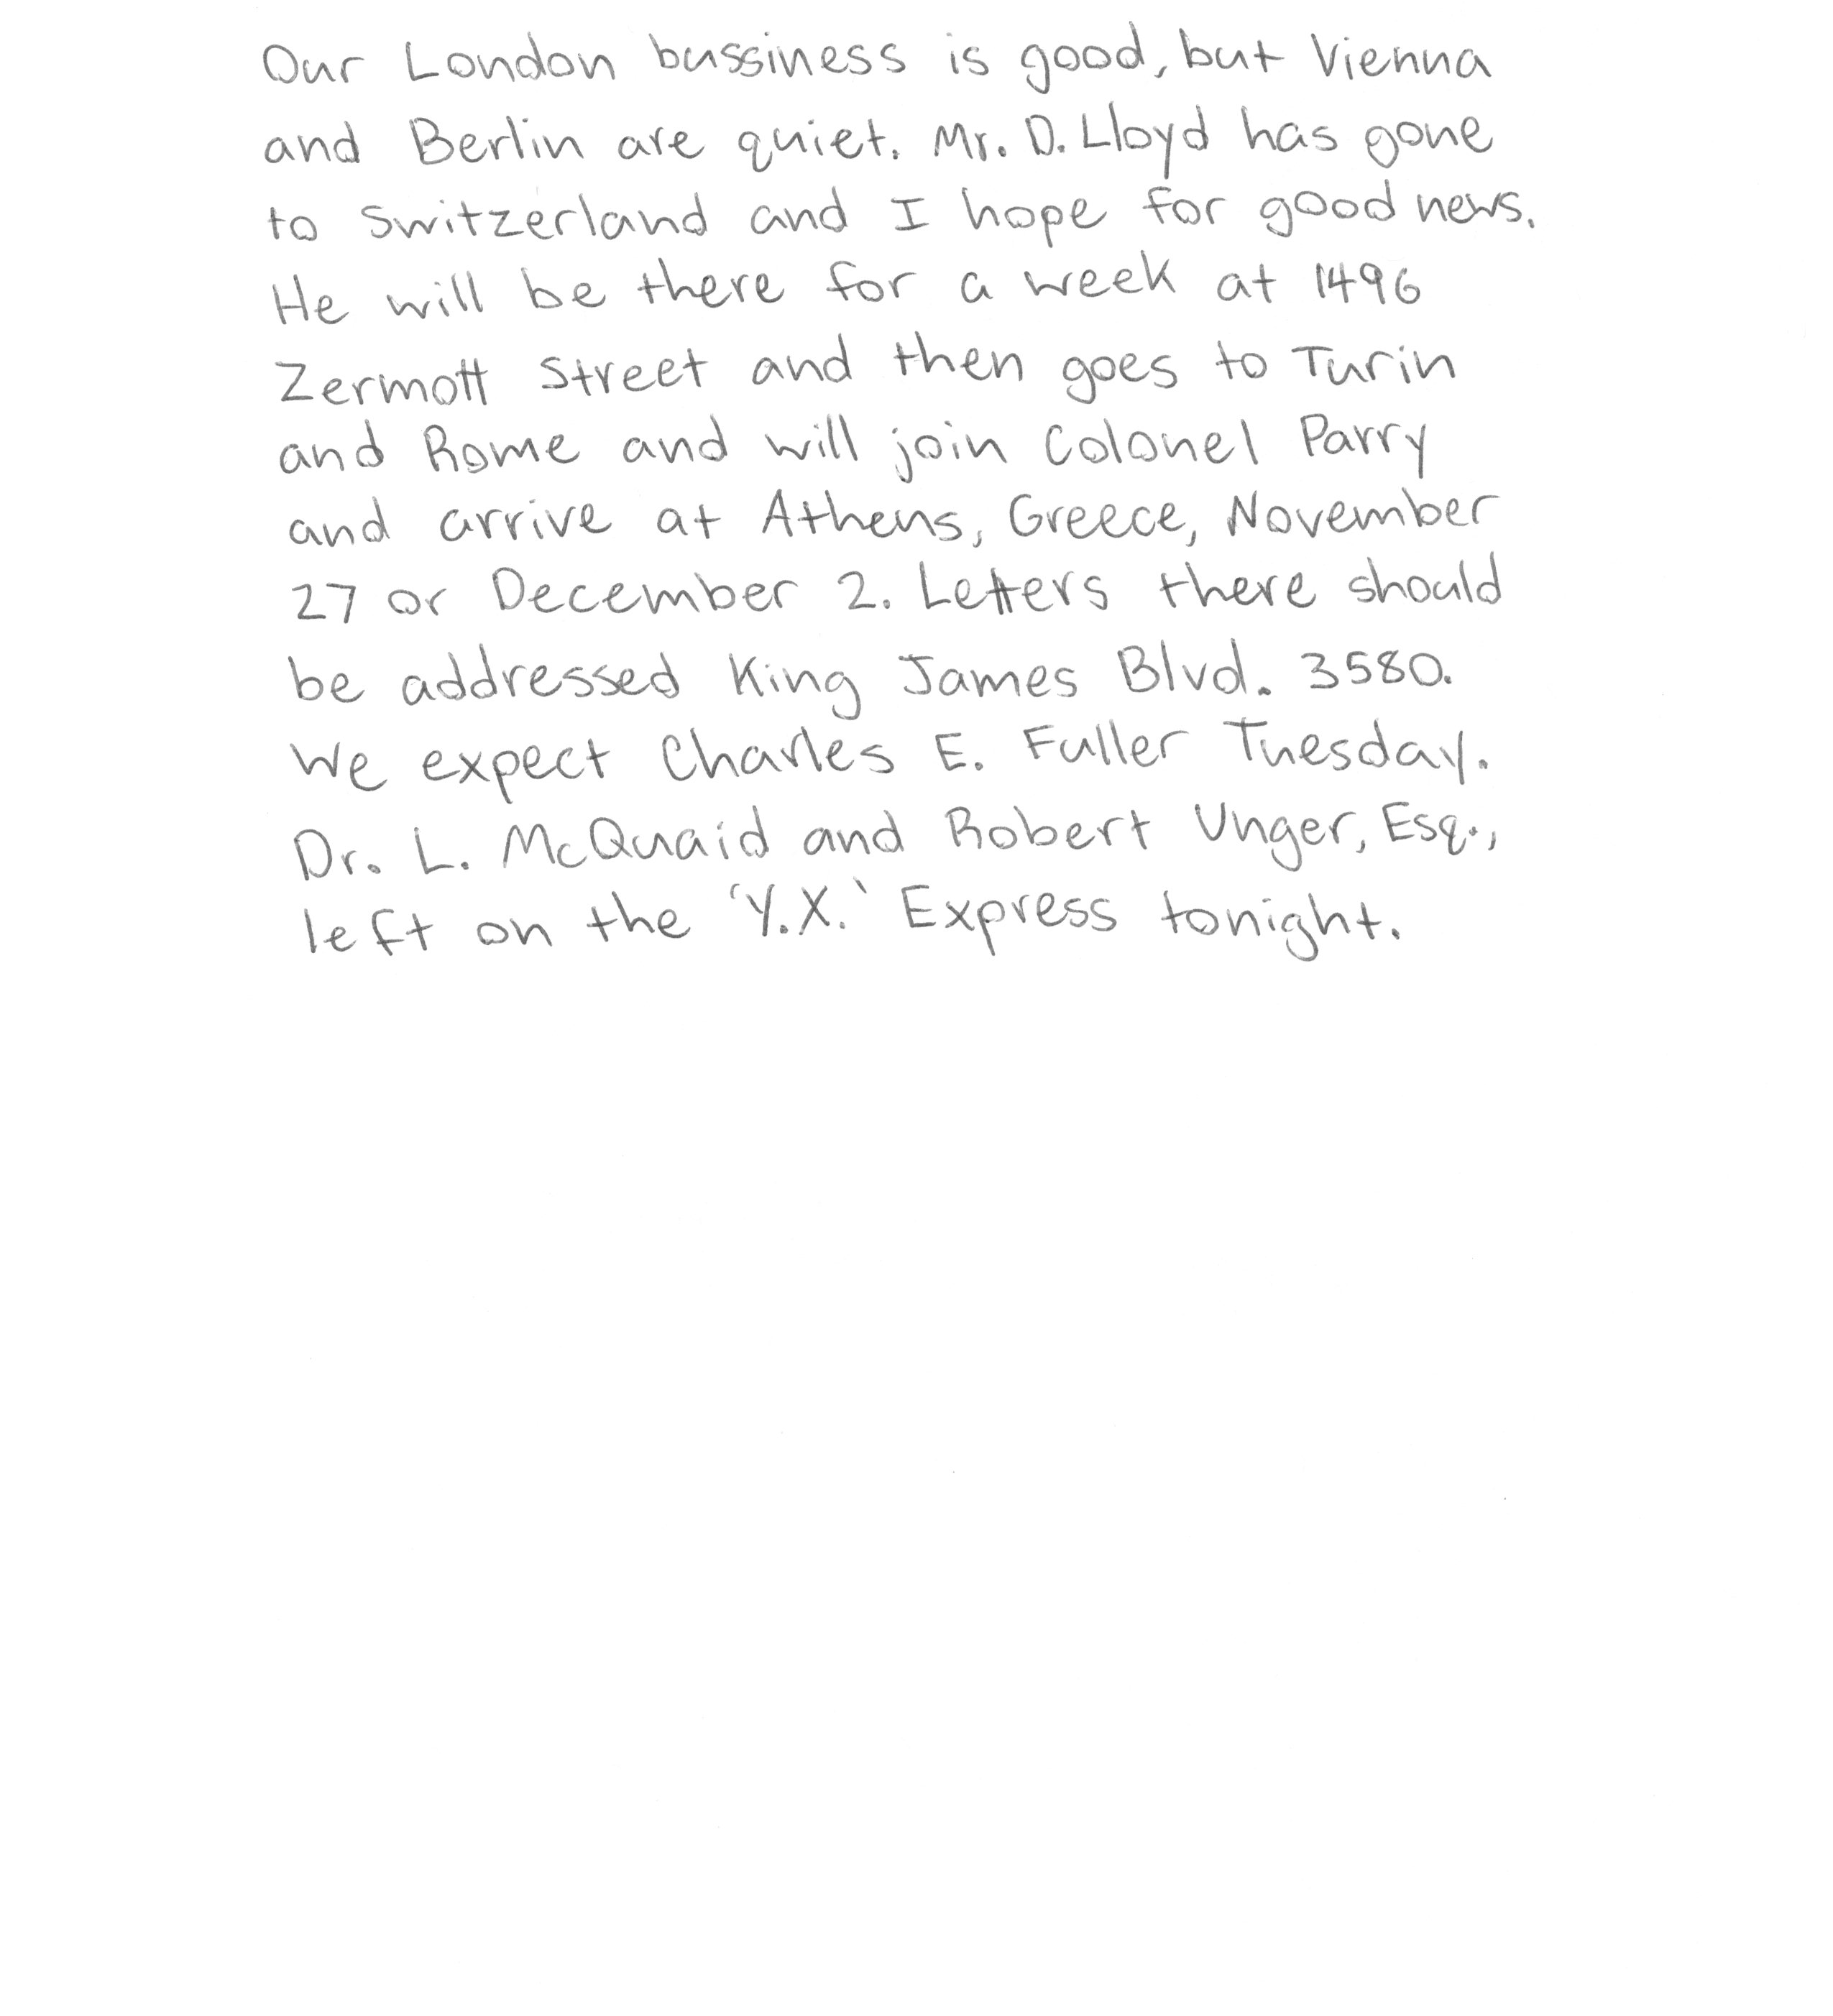 Our London bussiness is good, but Vienna
and Berlin are quiet. Mr. D. Lloyd has gone
to Switzerland and I hope for good news.
He will be there for a week at 1496
Zermott Street and then goes to Turin
and Rome and will join Colonel Parry
and arrive at Athens, Greece, November
27 or December 2. Letters there should
be addressed King James Blvd. 3580.
We expect Charles E. Fuller Tuesday.
Dr. L. McQuaid and Robert Unger, Esq.,
left on the 'Y.X.' Express tonight.